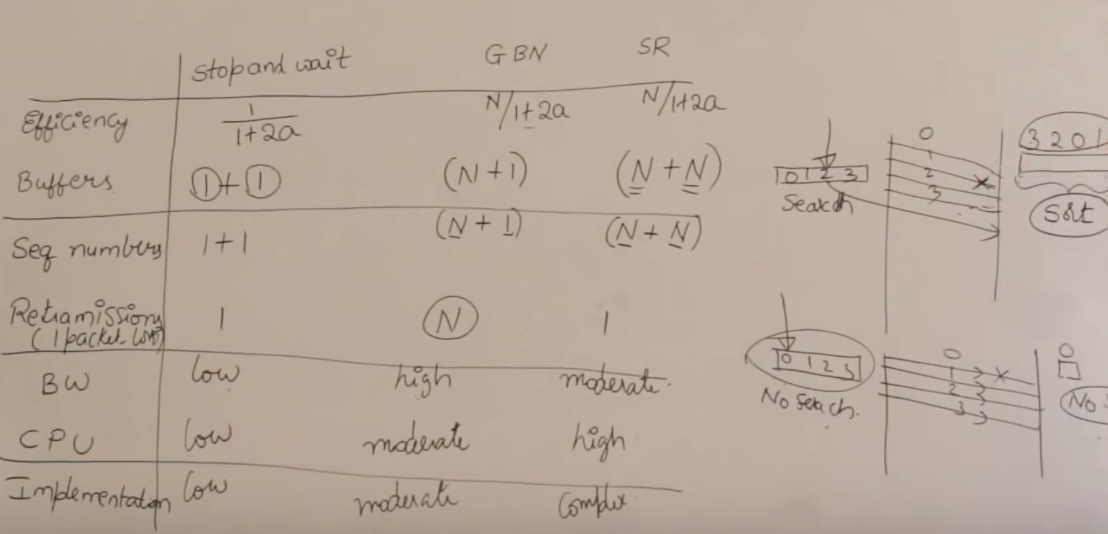 Stop and wait GBN SR
Efficiency 1/1+2a N/1+2a N/1+2a
Buffers 1+1 (N+1) (N+N)
Seq numbers 1+1 (N+1) (N+N)
Retramissions 1 N 1
(1 packet lost)
BW low high moderate.
CPU low moderate high
Implementation low moderate complex
0
1
2
3
0 1 2 3
Search
3 2 0 1
Sort
0
1
2
3
0 1 2 3
No Seach.
0
No